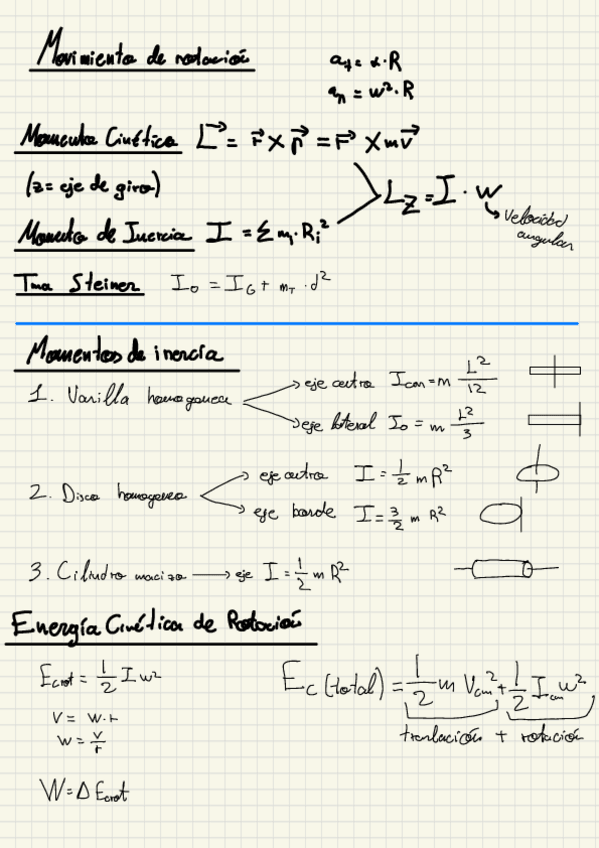 Movimiento de rotación
a_t = α · R
a_n = w² · R
Momento Cinético L⃗ = r⃗ × p⃗ = r⃗ × m v⃗
(z = eje de giro)
L_z = I · w
velocidad angular
Momento de Inercia I = Σ m_i · R_i²
Tma Steiner I_o = I_G + m_T · d²
Momentos de inercia
1. Varilla homogenea
eje centro I_cm = m L²/12
eje lateral I_o = m L²/3
2. Disco homogeneo
eje centro I = 1/2 m R²
eje borde I = 3/2 m R²
3. Cilindro macizo → eje I = 1/2 m R²
Energía Cinética de Rotación
E_crot = 1/2 I w²
V = w · r
w = v/r
W = Δ E_crot
E_c (total) = 1/2 m V_cm² + 1/2 I_cm w²
translación + rotación